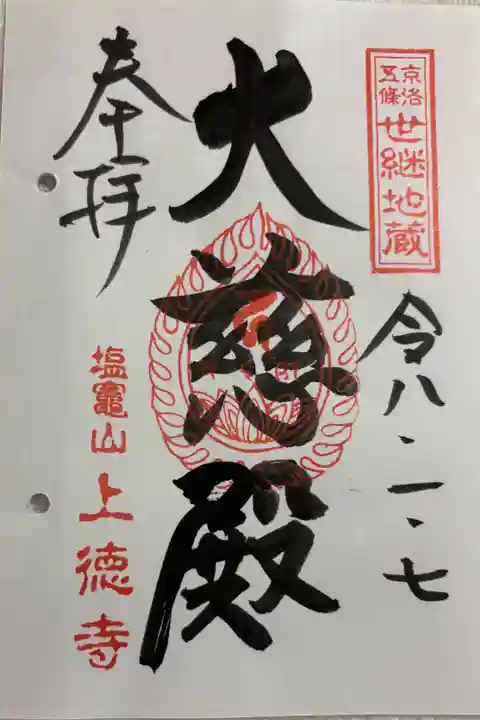 京洛
五條
世継地蔵
令八、一、七
大慈殿
奉拝
塩竈山
上徳寺